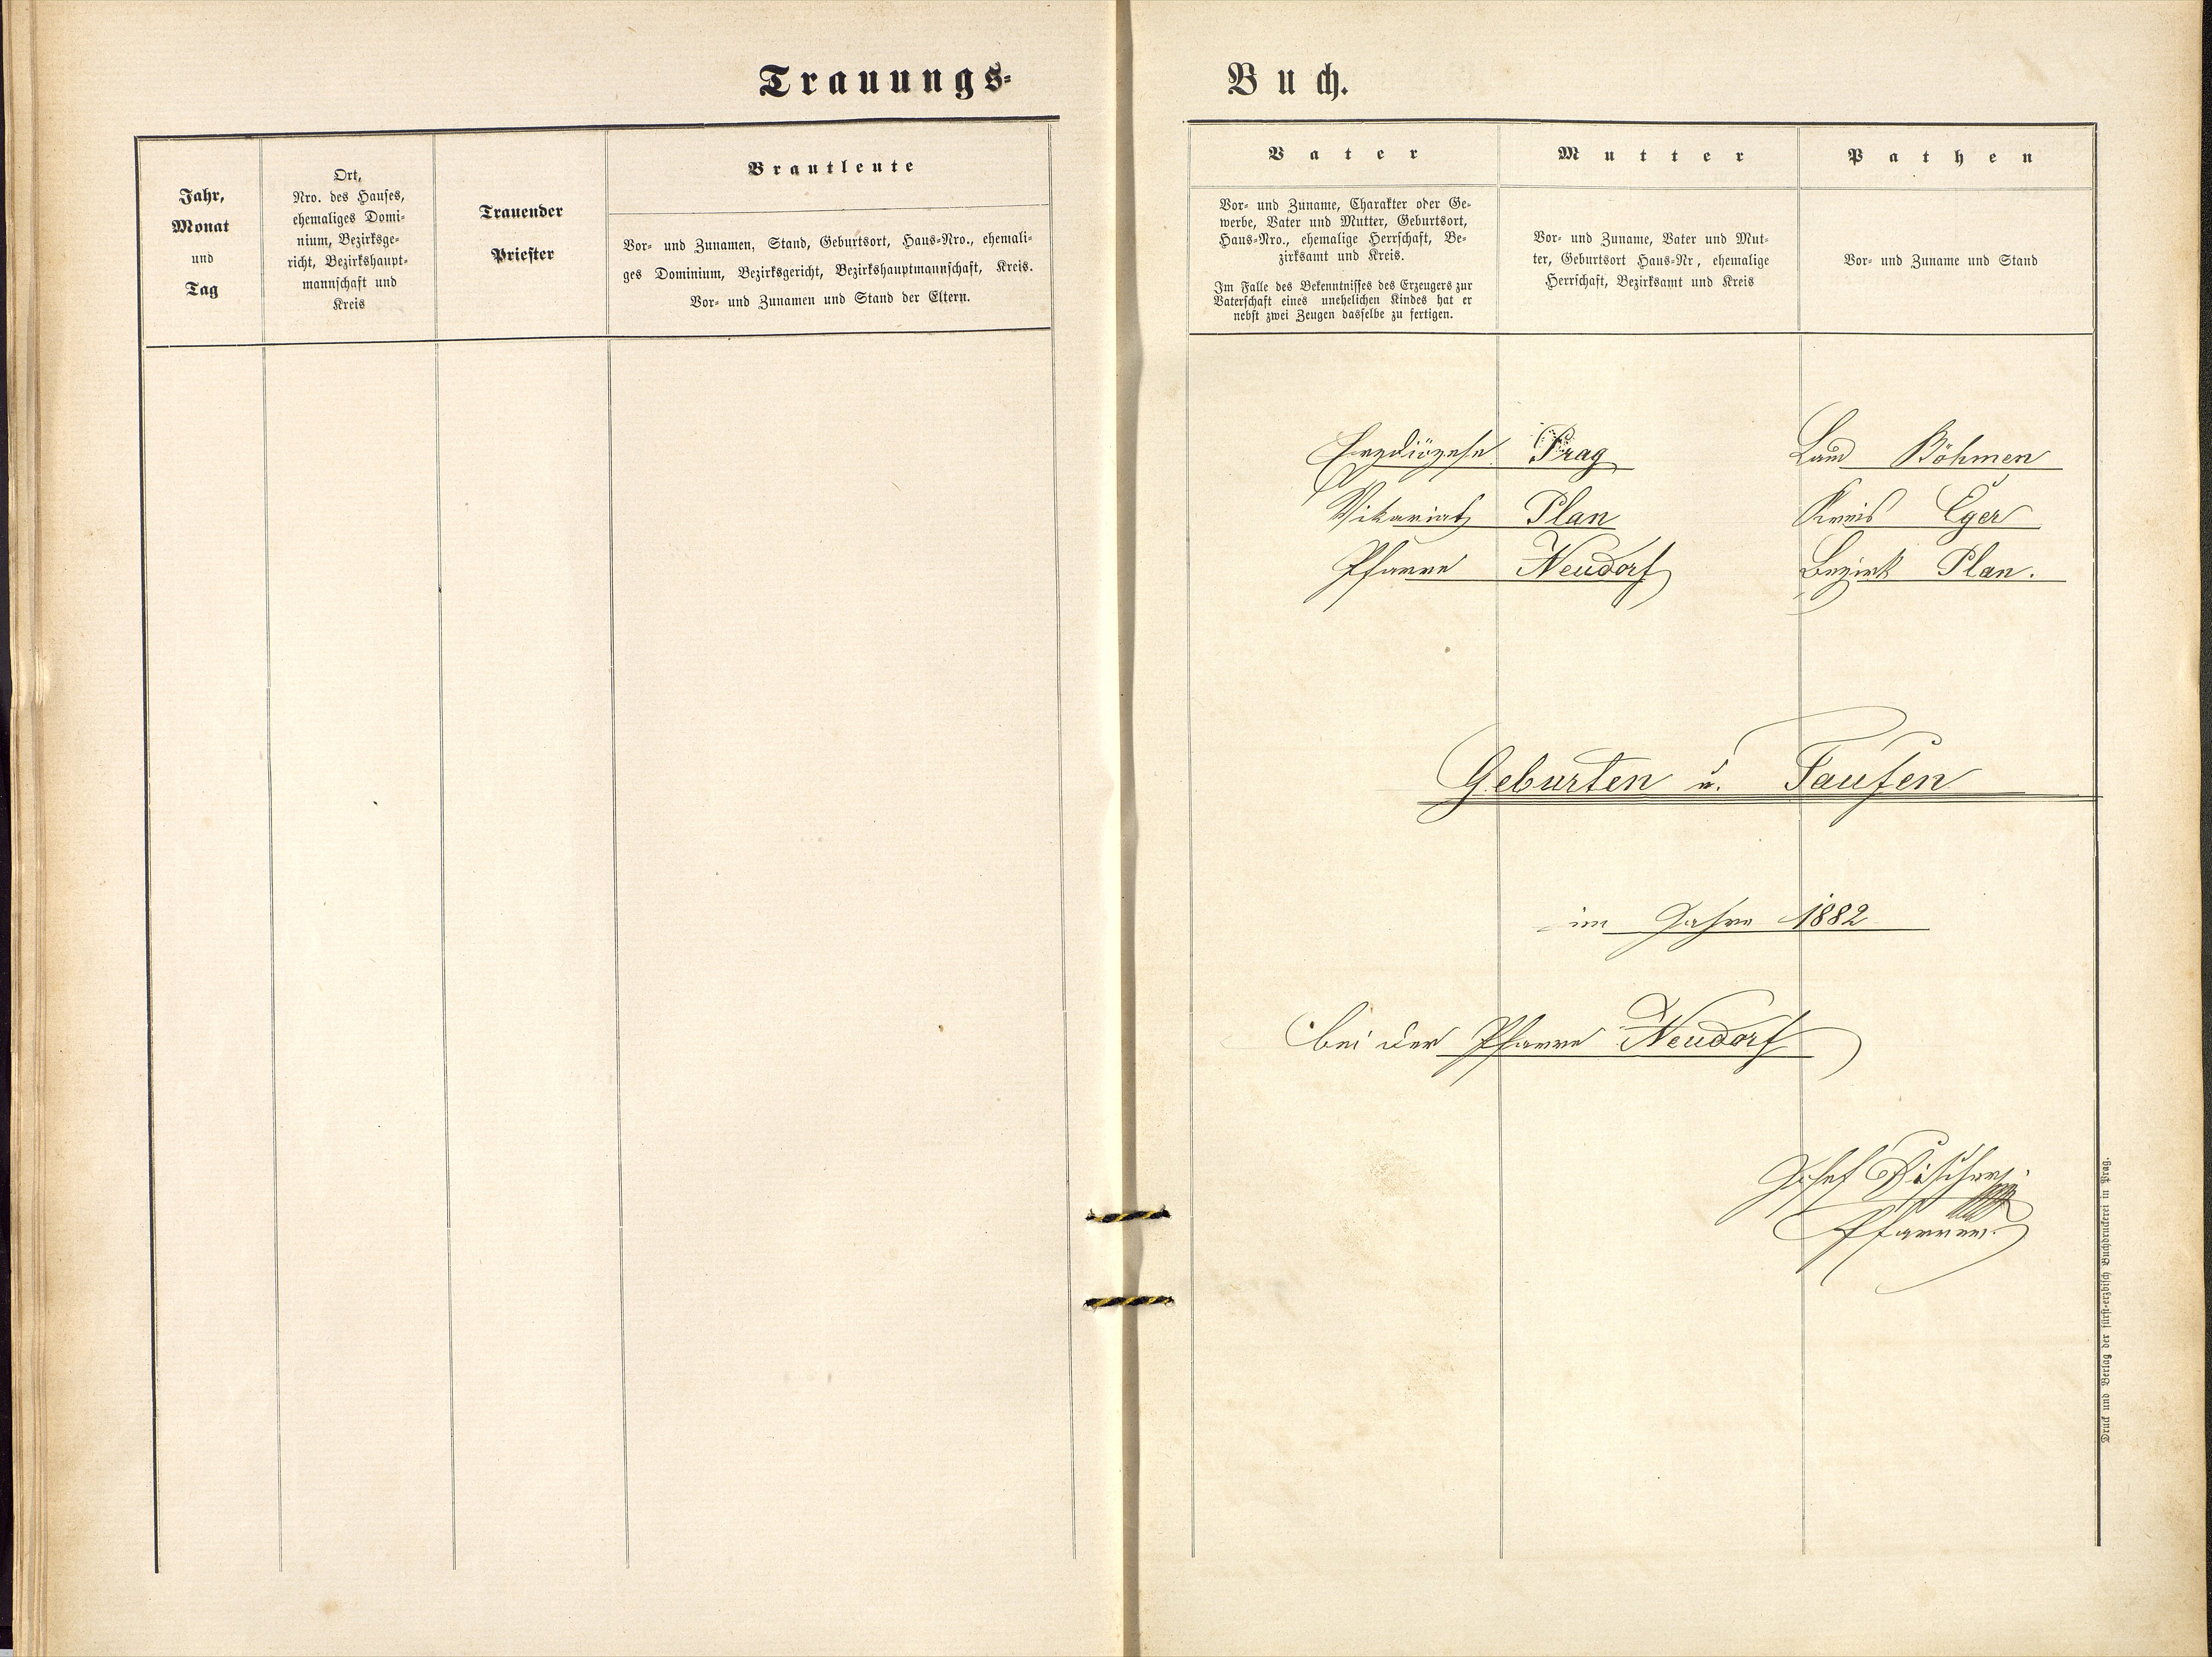 Trauungs-
Jahr,
Monat
und
Tag
Ort,
Nro. des Hauses,
ehemaliges Domi-
nium, Bezirksge-
richt, Bezirkshaupt-
mannschaft und
Kreis
Trauender
Priester
Brautleute
Vor- und Zunamen, Stand, Geburtsort, Haus-Nro., ehemali-
ges Dominium, Bezirksgericht, Bezirkshauptmannschaft, Kreis.
Vor- und Zunamen und Stand der Eltern.
Buch.
Vater
Vor- und Zuname, Charakter oder Ge-
werbe, Vater und Mutter, Geburtsort,
Haus-Nro., ehemalige Herrschaft, Be-
zirksamt und Kreis.
Im Falle des Bekenntnisses des Erzeugers zur
Vaterschaft eines unehelichen Kindes hat er
nebst zwei Zeugen dasselbe zu fertigen.
Mutter
Vor- und Zuname, Vater und Mut-
ter, Geburtsort Haus-Nr, ehemalige
Herrschaft, Bezirksamt und Kreis
Pathen
Vor- und Zuname und Stand
Erzdiözese Prag Land Böhmen
Vikariat Plan Kreis Eger
Pfarre Neudorf Bezirk Plan.
Geburten u. Taufen
im Jahre 1882
bei der Pfarre Neudorf
Josef
Pfarrer.
Druck und Verlag der fürst-erzbisch Buchdruckerei in Prag.